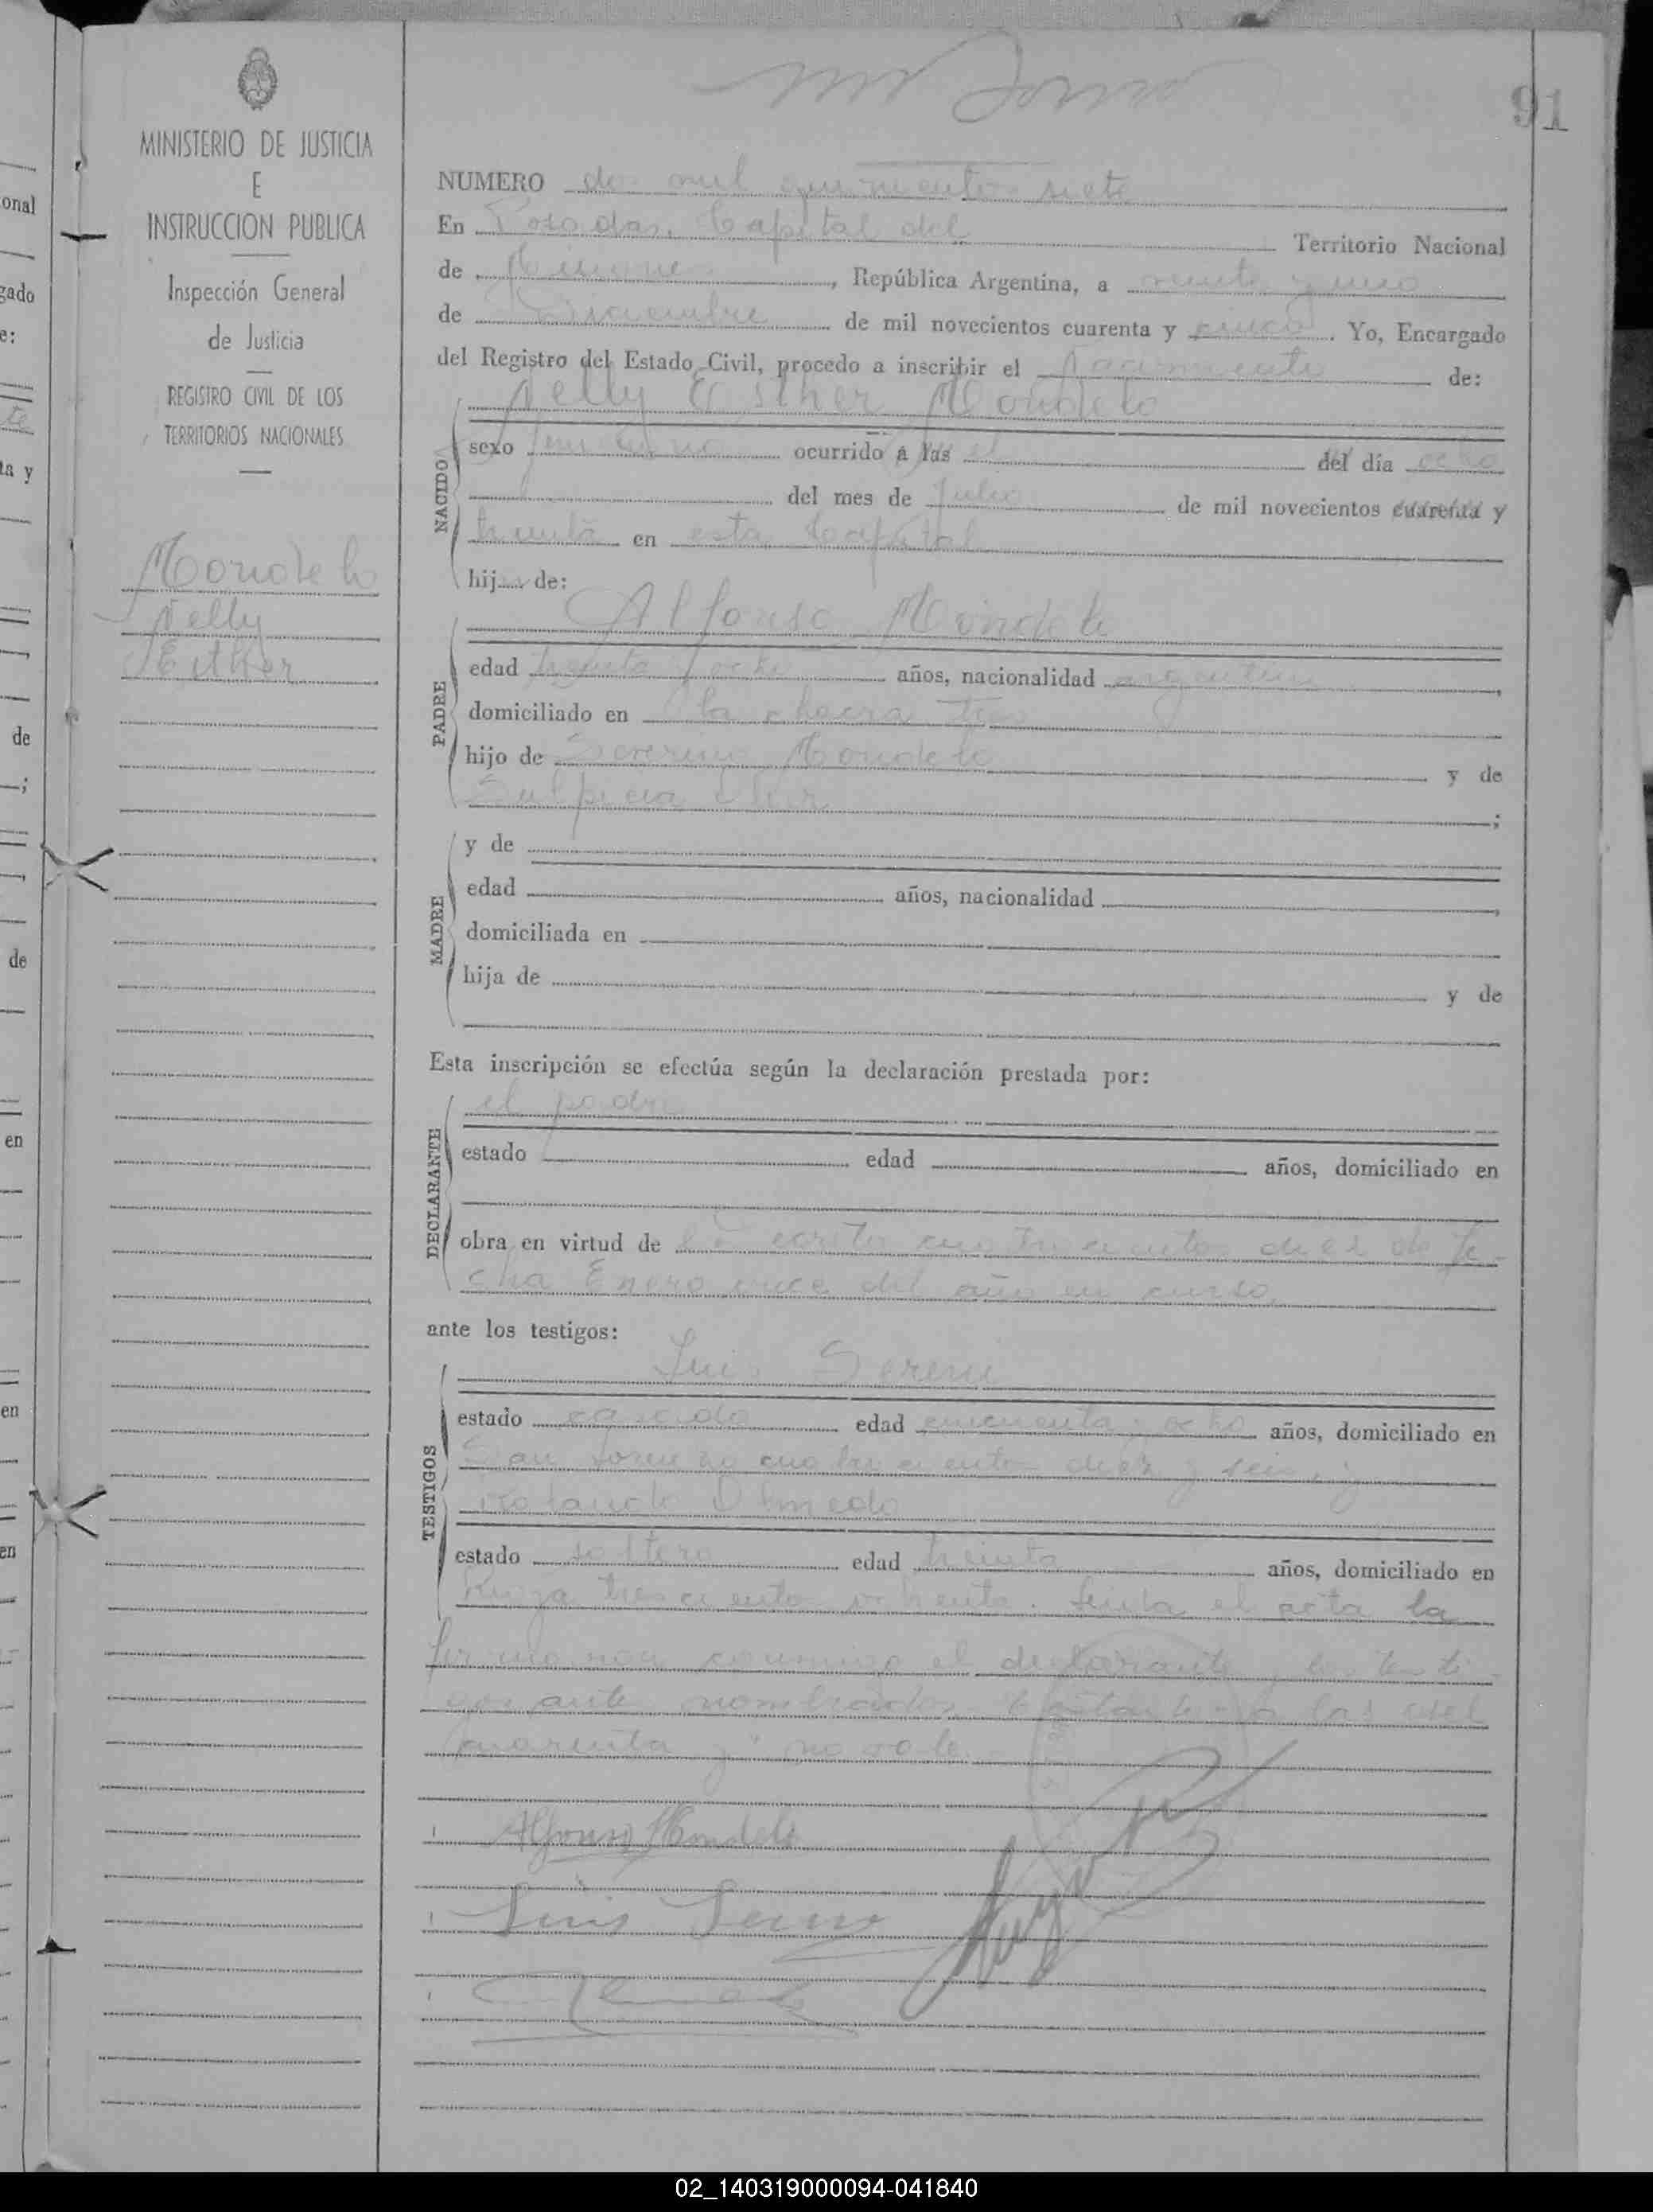 91
MINISTERIO DE JUSTICIA
E
INSTRUCCION PUBLICA
Inspección General
de Justicia
REGISTRO CIVIL DE LOS
TERRITORIOS NACIONALES
Mondelo
Nelly
Esther
NUMERO dos mil quinientos siete
En Posadas, Capital del Territorio Nacional
de Misiones, República Argentina, a veinte y uno
de Diciembre de mil novecientos cuarenta y cinco. Yo, Encargado
del Registro del Estado Civil, procedo a inscribir el Nacimiento de:
Nelly Esther Mondelo
NACIDO
sexo femenino ocurrido a las el del día ocho
del mes de Julio de mil novecientos cuarenta y
treinta en esta Capital
hij de:
Alfonso Mondelo
PADRE
edad treinta y ocho años, nacionalidad argentino,
domiciliado en la chacra
hijo de Severino Mondelo y de
Sulpicia ;
MADRE
y de
edad años, nacionalidad ,
domiciliada en
hija de y de
Esta inscripción se efectúa según la declaración prestada por:
el padre
DECLARANTE
estado edad años, domiciliado en
obra en virtud de cuatrocientos diez de fe-
cha Enero once del año en curso,
ante los testigos:
Luis Sereni
TESTIGOS
estado casado edad cincuenta y ocho años, domiciliado en
San Lorenzo cuatrocientos diez y seis, y
Rolando Olmedo
estado soltero edad treinta años, domiciliado en
trescientos ochenta. Leída el acta la
firmaron conmigo el declarante y los testi-
gos ante nombrados. a las del
cuarenta y" no vale
Alfonso Mondelo
Luis Sereni
onal
gado
e:
te
ta y
de
de
en
en
en
02_140319000094-041840